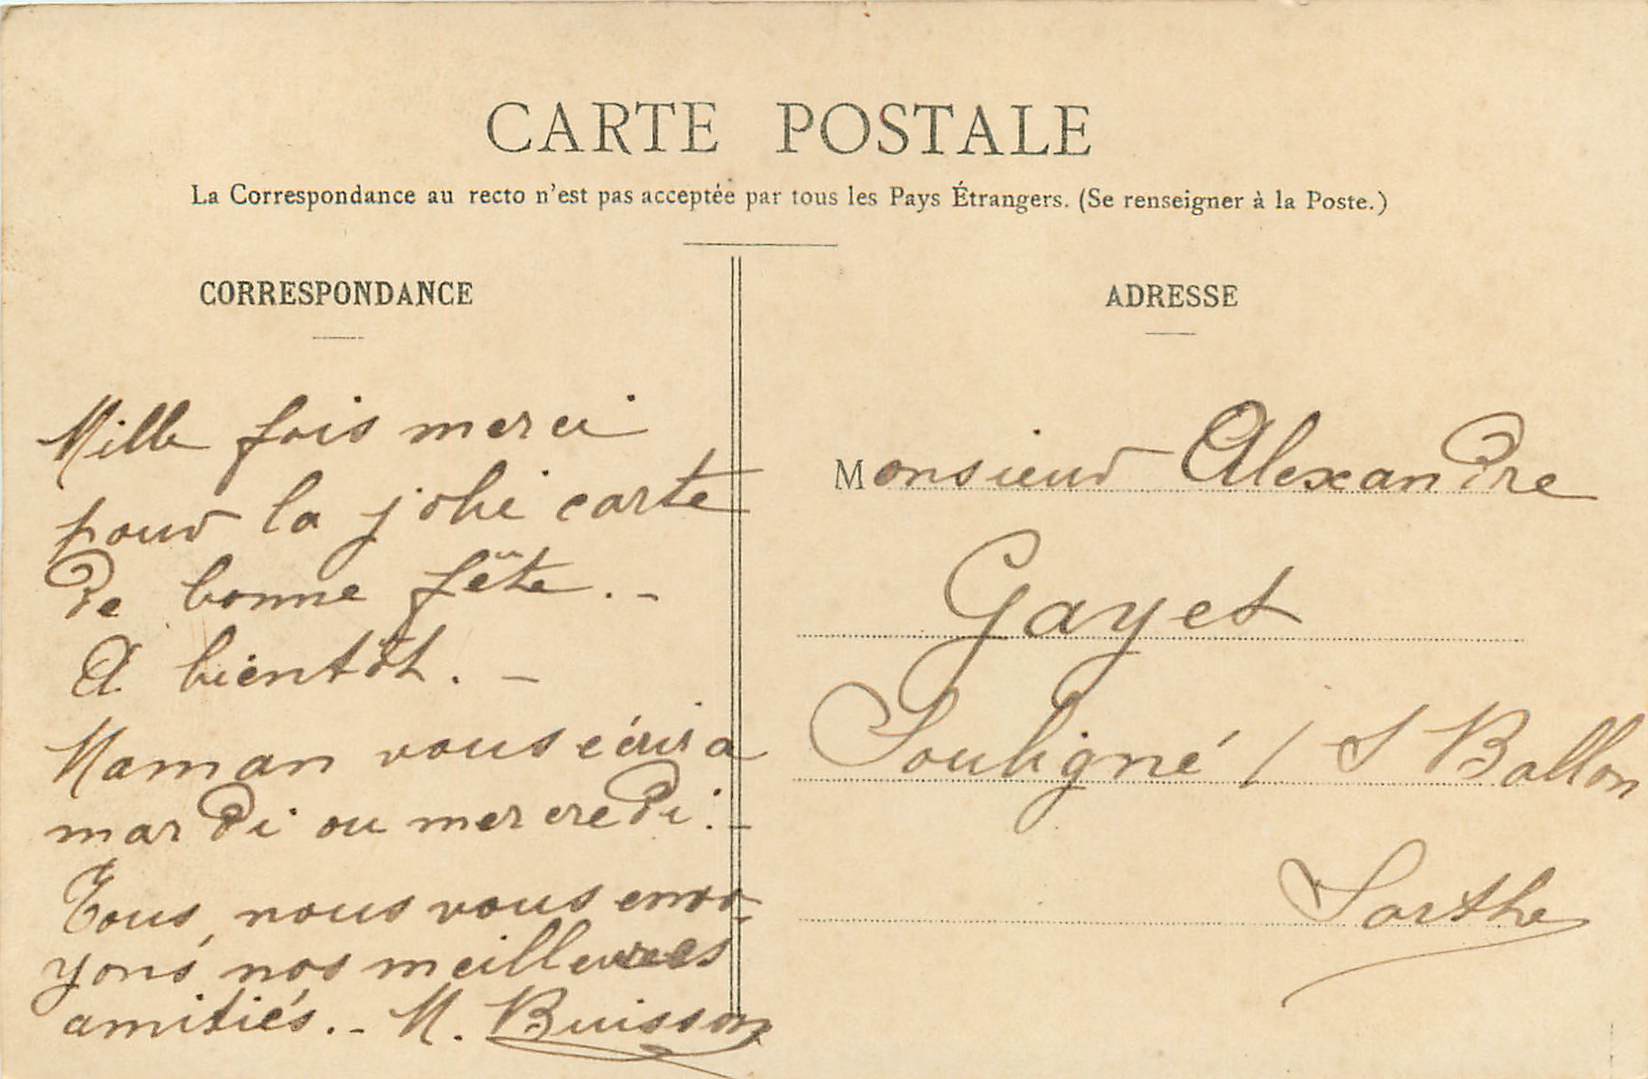 CARTE POSTALE
La Correspondance au recto n'est pas acceptée par tous les Pays Étrangers. (Se renseigner à la Poste.)
CORRESPONDANCE
Mille fois merci
pour la jolie carte
de bonne fête. -
A bientôt. -
Maman vous écrira
mardi ou mercredi. -
Tous, nous vous envo-
yons nos meilleures
amitiés. - M. Buisson
ADRESSE
Monsieur Alexandre
Gayet
Souligné / S Ballon
Sarthe